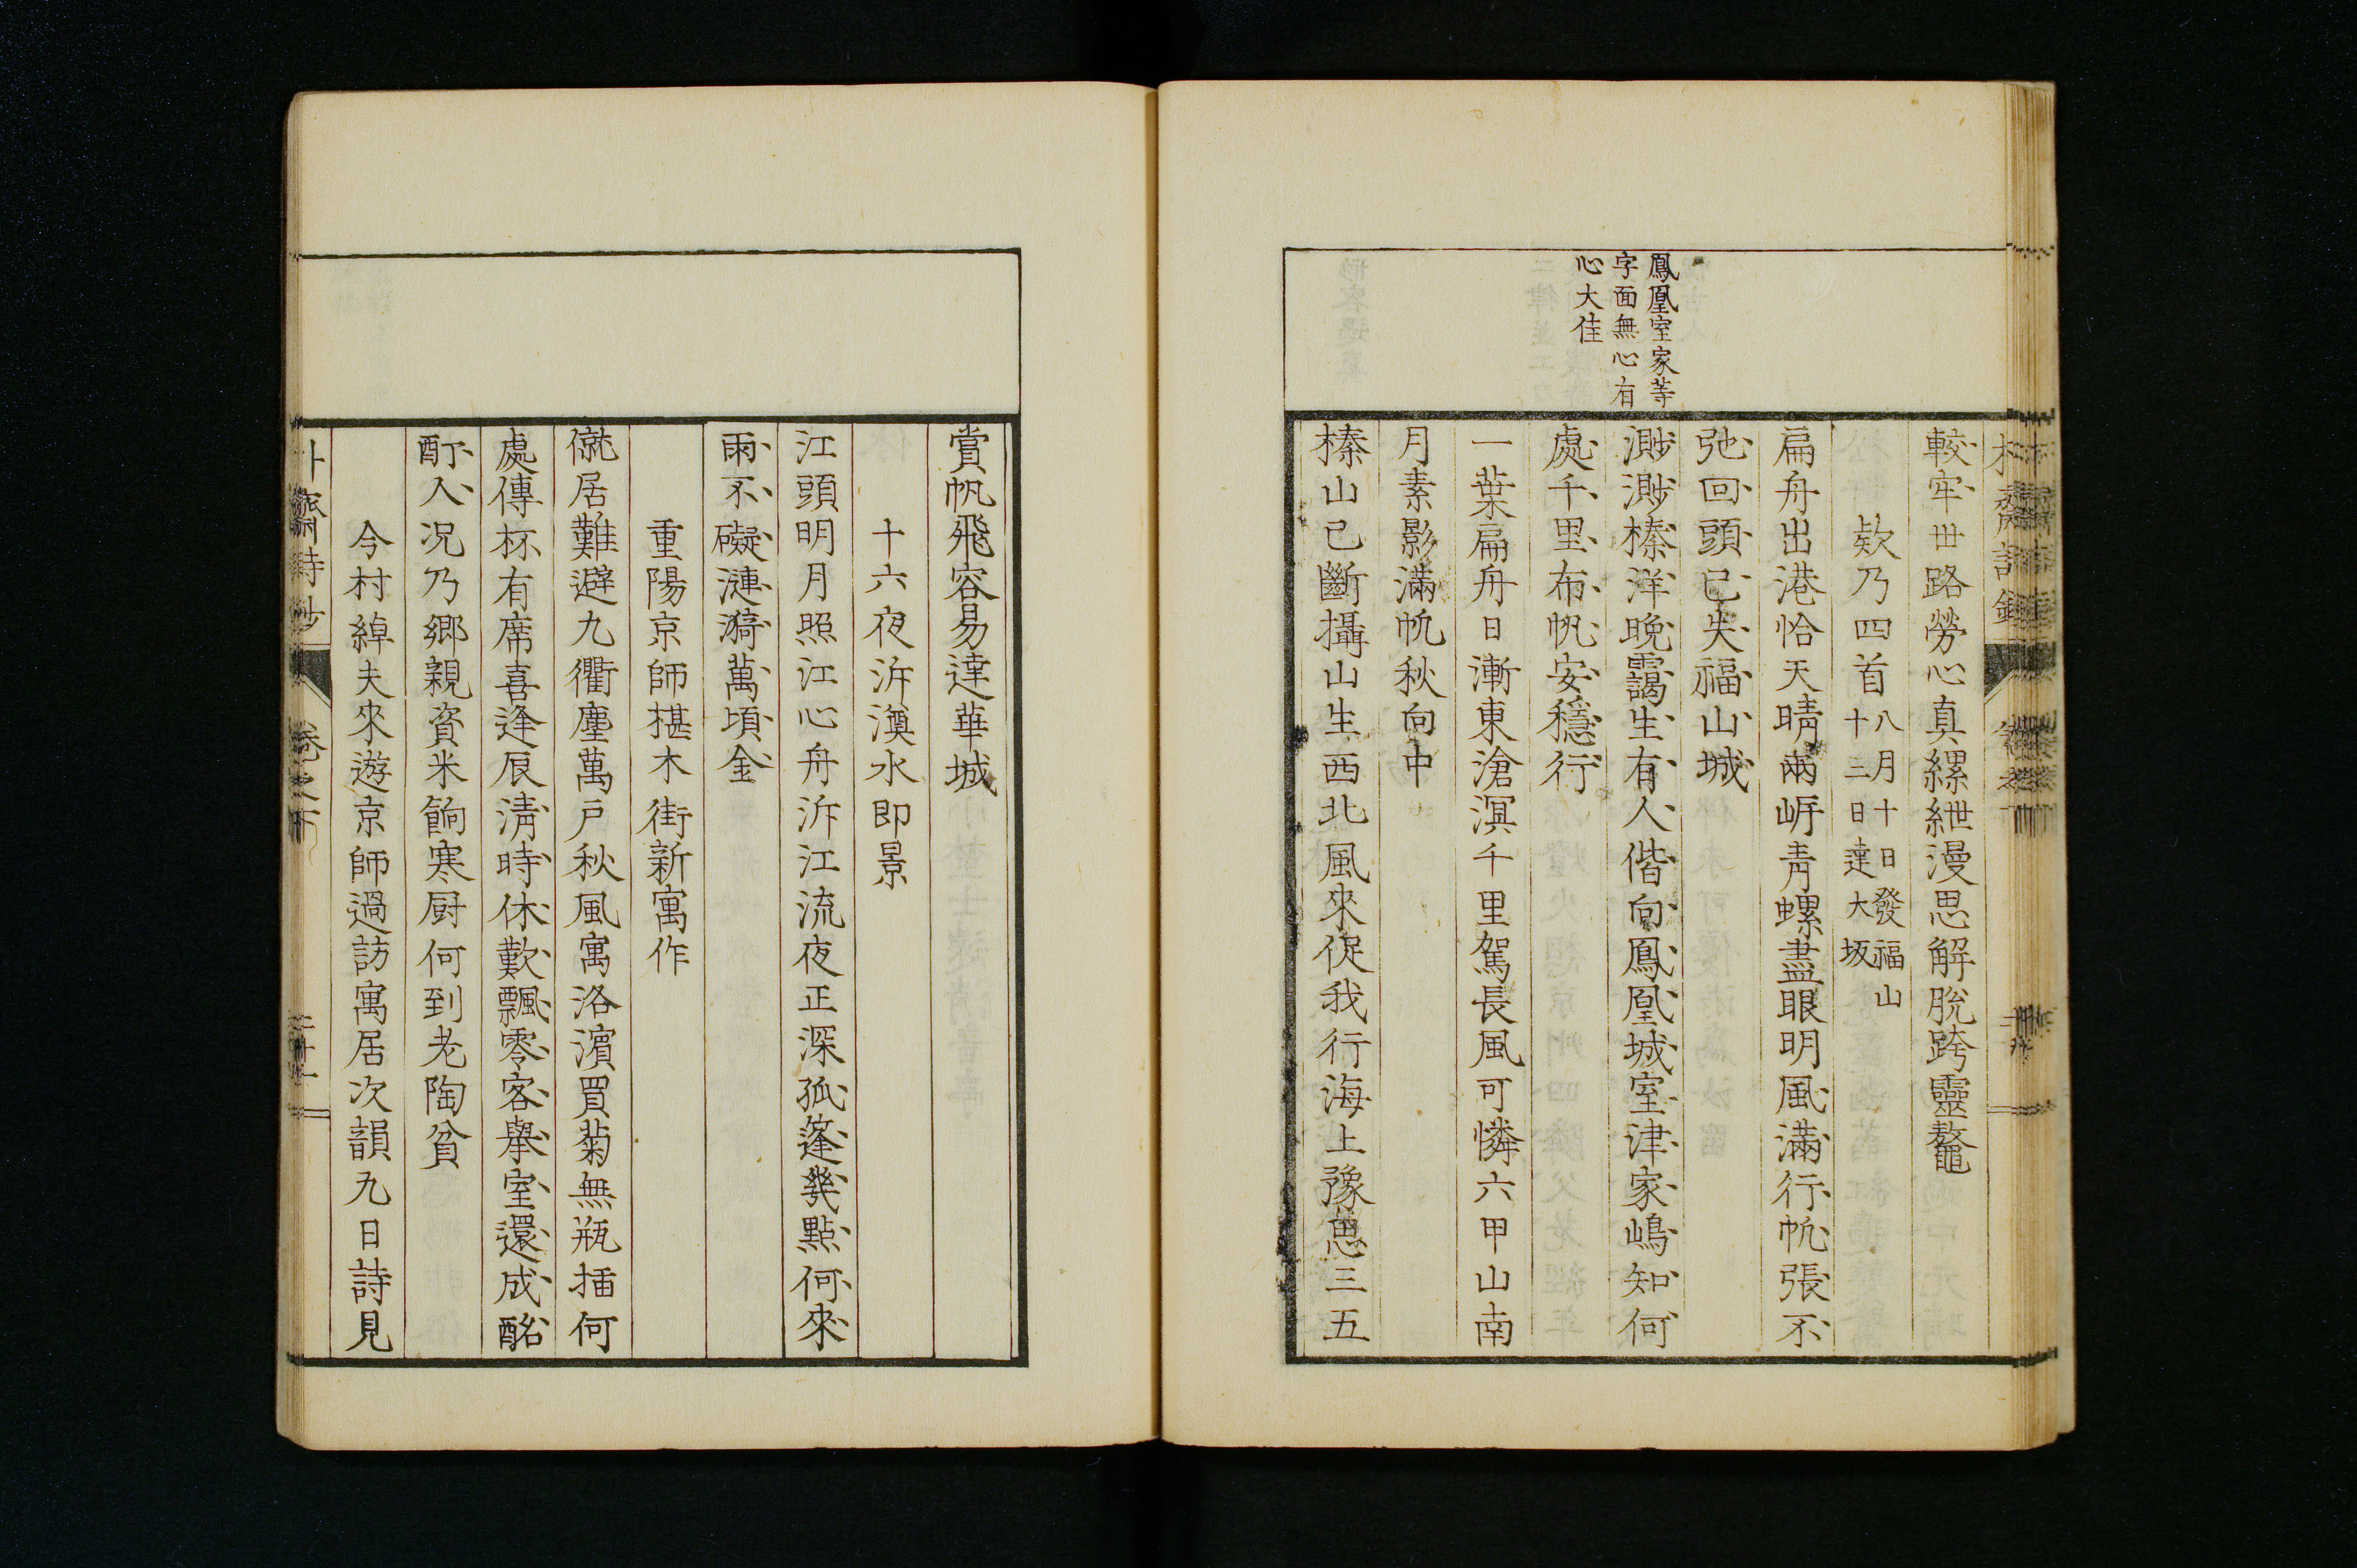 鳳凰室家等
字面無心有
心大佳
較牢世路勞心真縲紲漫思解脫跨靈鼇
欸乃四首八月十日發福山
十三日達大坂
扁舟出港恰天晴兩岸青螺盡眼明風滿行帆張不
弛回頭已失福山城
渺渺榛洋晚靄生有人偕向鳳凰城室津家嶋知何
處千里布帆安穩行
一葉扁舟日漸東滄溟千里駕長風可憐六甲山南
月素影滿帆秋向中
榛山已斷攝山生西北風來促我行海上豫思三五
賞帆飛容易達華城
十六夜泝澱水即景
江頭明月照江心舟泝江流夜正深孤篷幾點何來
雨不礙漣漪萬頃金
重陽京師椹木街新寓作
僦居難避九衢塵萬戶秋風寓洛濱買菊無瓶插何
處傳杯有席喜逢辰清時休歎飄零客舉室還成酩
酊人況乃鄉親資米餉寒厨何到老陶貧
今村綽夫來遊京師過訪寓居次韻九日詩見
齋詩鈔
卷之下